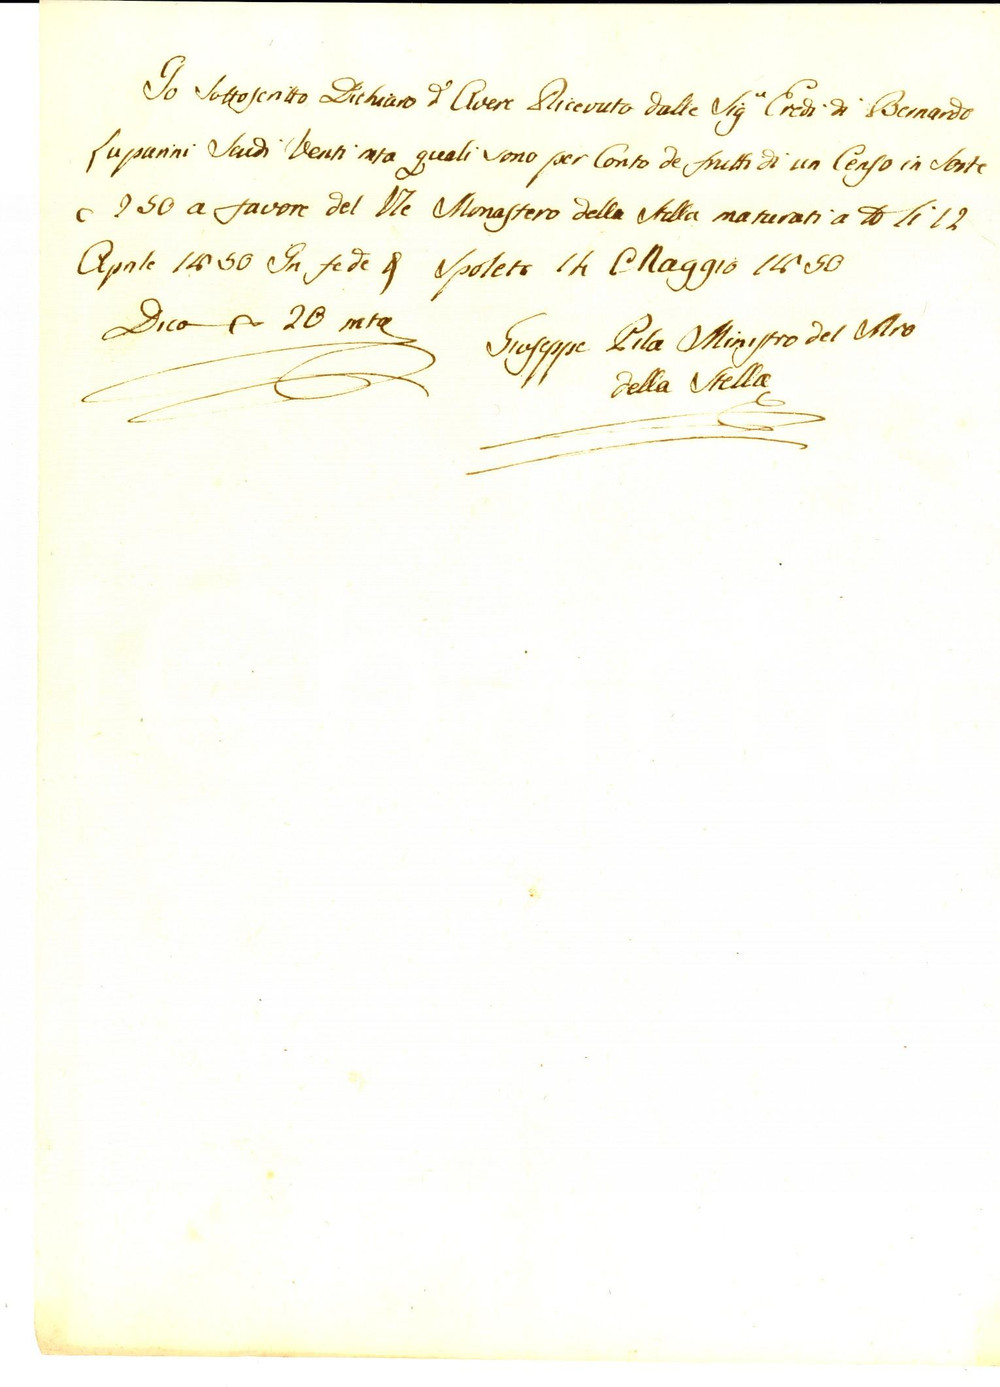 Io Sottoscritto Dichiaro d' Avere Ricevuto dalle Sig.e Eredi di Bernardo
Lupurini Scudi Venti mta quali sono per Conto de frutti di un Censo in Sorte
250 a favore del Ve Monastero della Stella maturati a tt li 12
Aprile 1850 In fede Spoleto 14 Maggio 1850
Dico 20 mta
Giuseppe Pila Ministro del Mro
della Stella